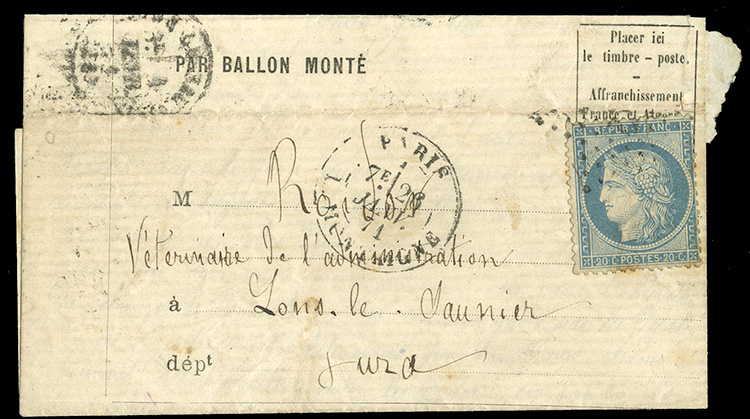 PAR BALLON MONTÉ
Placer ici
le timbre-poste.
-
Affranchissement
France et
REPUB. FRANC.
20 C. POSTES 20 C.
PARIS
7E
26
JANV.
71
M
Vétérinaire de l'administration
à Lons-le-Saunier
dépt Jura